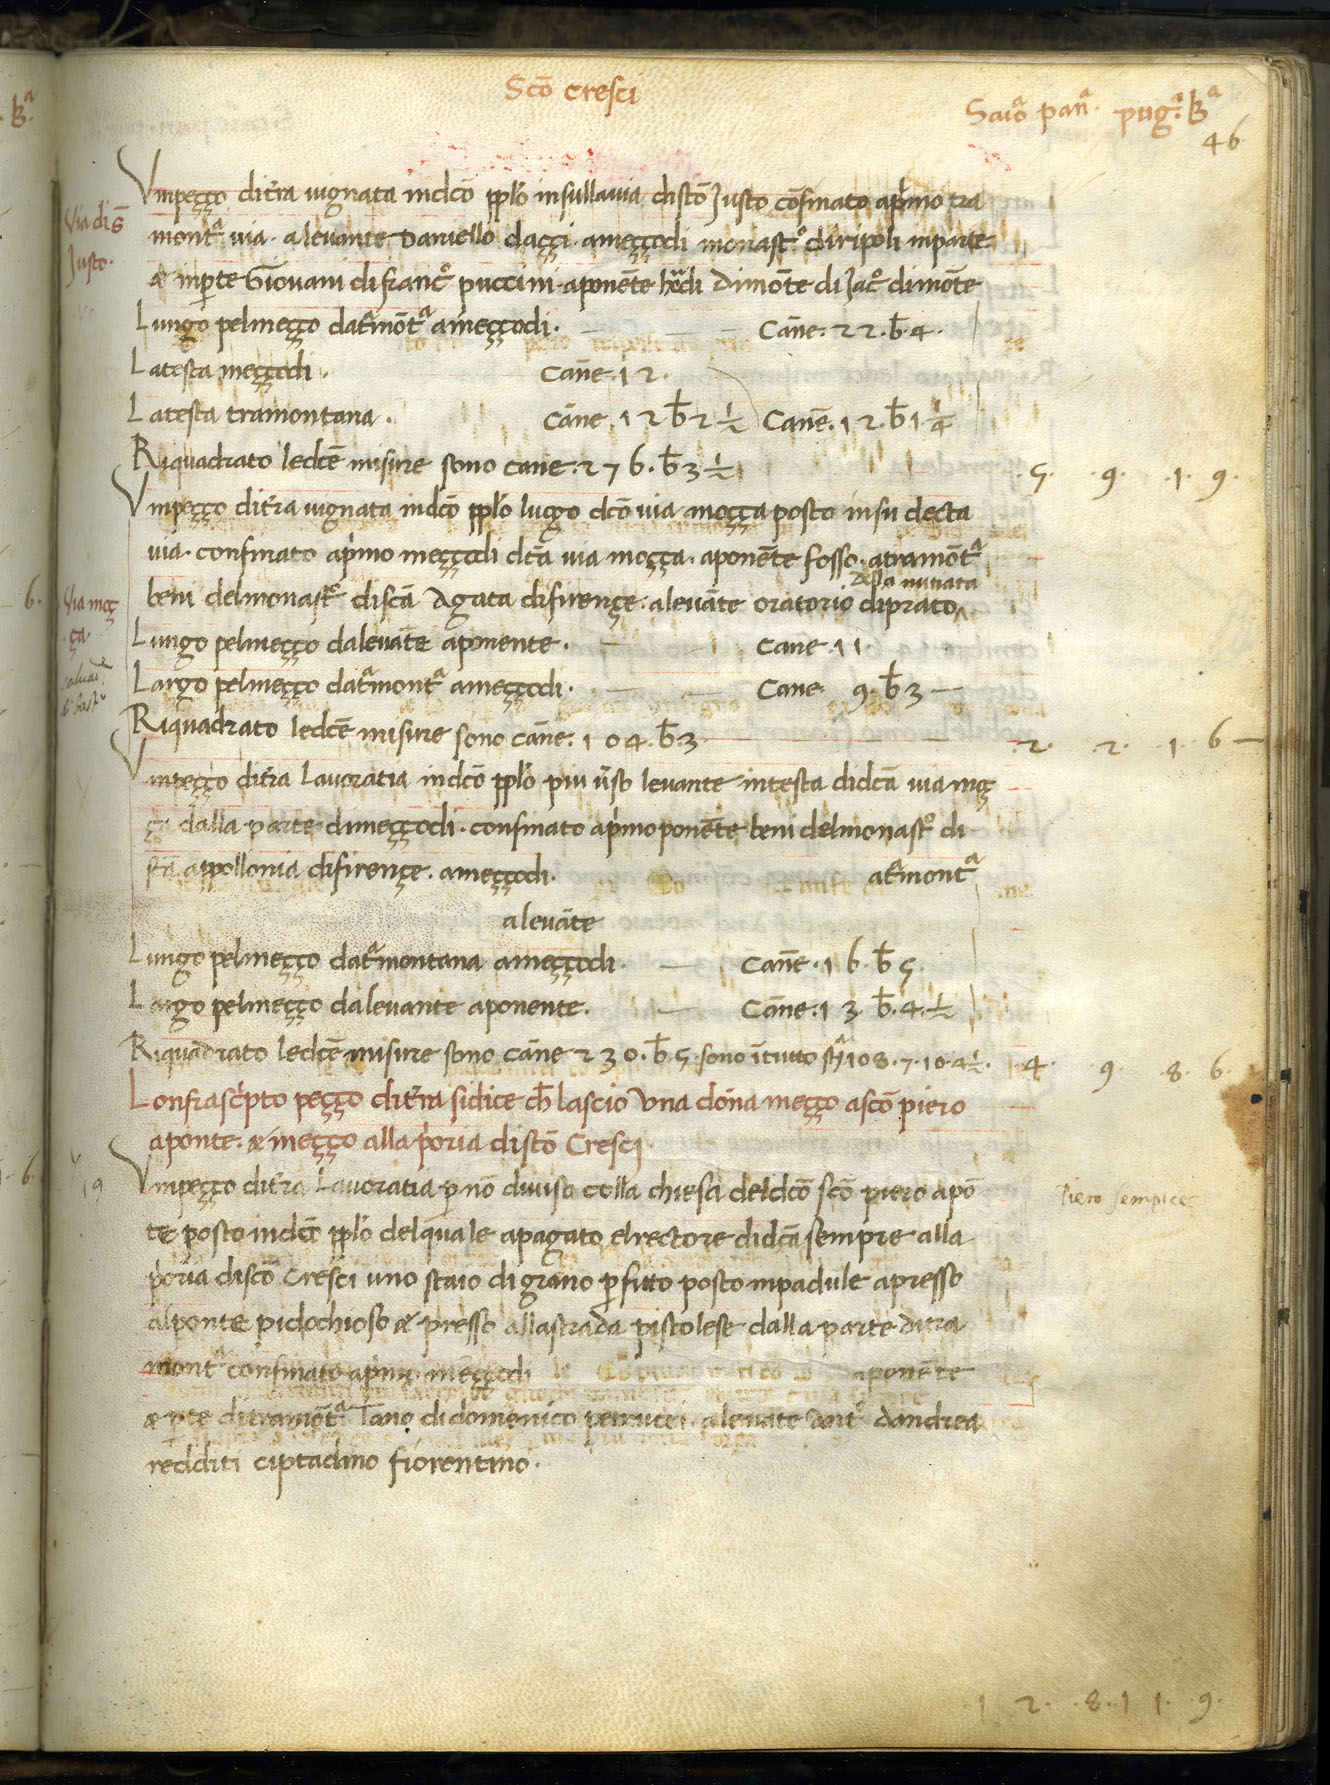 Scō Cresci
Staiᵃ panᵃ pugᵃ bᵃ
46
Vnpeçço diťra vignata indcō pplō insullavia discō Justo cōfinato ap̄mo tra
Via di S̄
Justo·
montᵃ via · alevante Daniello daççi · ameççodi monastº diripoli inparte
& inp̄te Giovani difrancº puccini · aponēte hr̄di Dimōte di Jacº dimōte
Lungo pelmeçço datͬamōtᵃ ameççodi · Cāne · 22 · b̄ · 4 ·
Latesta meççodi · Cāne · 12 ·
Latesta tramontana · Cāne · 12 b̄ 2 ½ Cānē · 12 · b̄ 1 ¼
Riquadrato ledcē misure sono cane · 276 · b̄ 3 ½ · 5 · 9 · 1 · 9 ·
Vnpeçço diťra vignata indcō pplō luogo dcō via moçça posto insu decta
via · confinato ap̄mo meççodi dcā via moçça · aponēte fosso · atramōtᵃ
della nutiata
beni delmonastº discā Agata difirençe · alevāte oratorio diprato
Via moç
ça ·
Lungo pelmeçço dalevāte aponente · Cane · 11 ·
Largo pelmeçço datͬamontᵃ ameççodi · Cane 9 · b̄ 3
Riquadrato ledcē misure sono cāne · 104 · b̄ · 3 · 2 · 2 · 1 · 6
Vnpeçço diťra Lavoratia indcō pplō piu ṽso levante intesta didcā via moç
ça dalla parte dimeççodi · confinato ap̄mo ponēte beni delmonastº di
scā appollonia difirençe · ameççodi · atͬamontᵃ
alevāte
Lungo pelmeçço datͬamontana ameççodi · Cānē · 16 b̄ 5
Largo pelmeçço dalevante aponente · Cāne · 13 · b̄ · 4 · ½
Riquadrato ledcē misure sono cāne 230 · b̄ · 5 · sono ītutto stᵃ 108 · 7 · 10 · 4½ · 4 · 9 · 8 · 6 ·
Lonfrascͥpto peçço diťra sidice ch̄ lascio Vna dōna meçço ascō piero
aponte · & meçço alla p̄oria discō Cresci
Vnpeçço diťra Lavoratia p̄ nō diviso colla chiesa deldcō scō piero apō
te posto indcō pplō delquale apagato elrectore didcā sempre alla
Piero sempice
p̄oria discō Cresci uno staio di grano p̄ fitto posto inpadule apresso
alponte pidochioso & presso allastrada pistolese dalla parte ditra
montᵃ confinato ap̄mo meççodi aponēte
& p̄te ditramōtᵃ Tano di domenico perrucci · alevāte Antº dandrea
redditi ciptadino fiorentino ·
· 1 2 · 8 · 1 1 · 9 ·